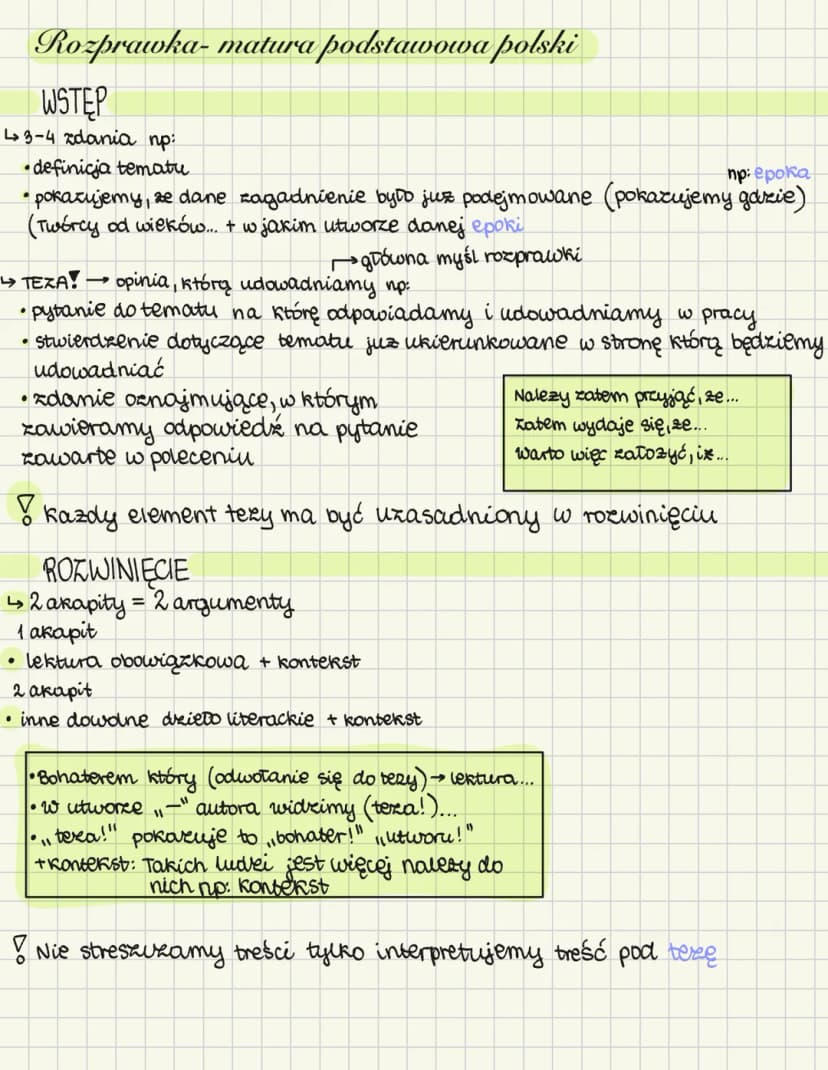 Rozprawka- matura podstawowa polski
WSTĘP
↳ 3-4 zdania np:
• definicja tematu
np: epoka
• pokazujemy, że dane zagadnienie było już podejmowane (pokazujemy gdzie)
(Twórcy od wieków... + w jakim utworze danej epoki
↳ główna myśl rozprawki
↳ TEZA! → opinia, którą udowadniamy np:
• pytanie do tematu na którę odpowiadamy i udowadniamy w pracy
• stwierdzenie dotyczące tematu już ukierunkowane w stronę którą będziemy
udowadniać
• zdanie oznajmujące, w którym
zawieramy odpowiedź na pytanie
zawarte w poleceniu
Należy zatem przyjąć, że...
Zatem wydaje się, że...
Warto więc założyć, iż...
! każdy element tezy ma być uzasadniony w rozwinięciu
ROZWINIĘCIE
↳ 2 akapity = 2 argumenty
1 akapit
• lektura obowiązkowa + kontekst
2 akapit
• inne dowolne dzieło literackie + kontekst
• Bohaterem który (odwołanie się do tezy) → lektura...
• w utworze „—" autora widzimy (teza!)...
• „teza!" pokazuje to „bohater!" „utworu!"
+ kontekst: Takich ludzi jest więcej należy do
nich np. kontekst
! Nie streszczamy treści tylko interpretujemy treść pod tezę